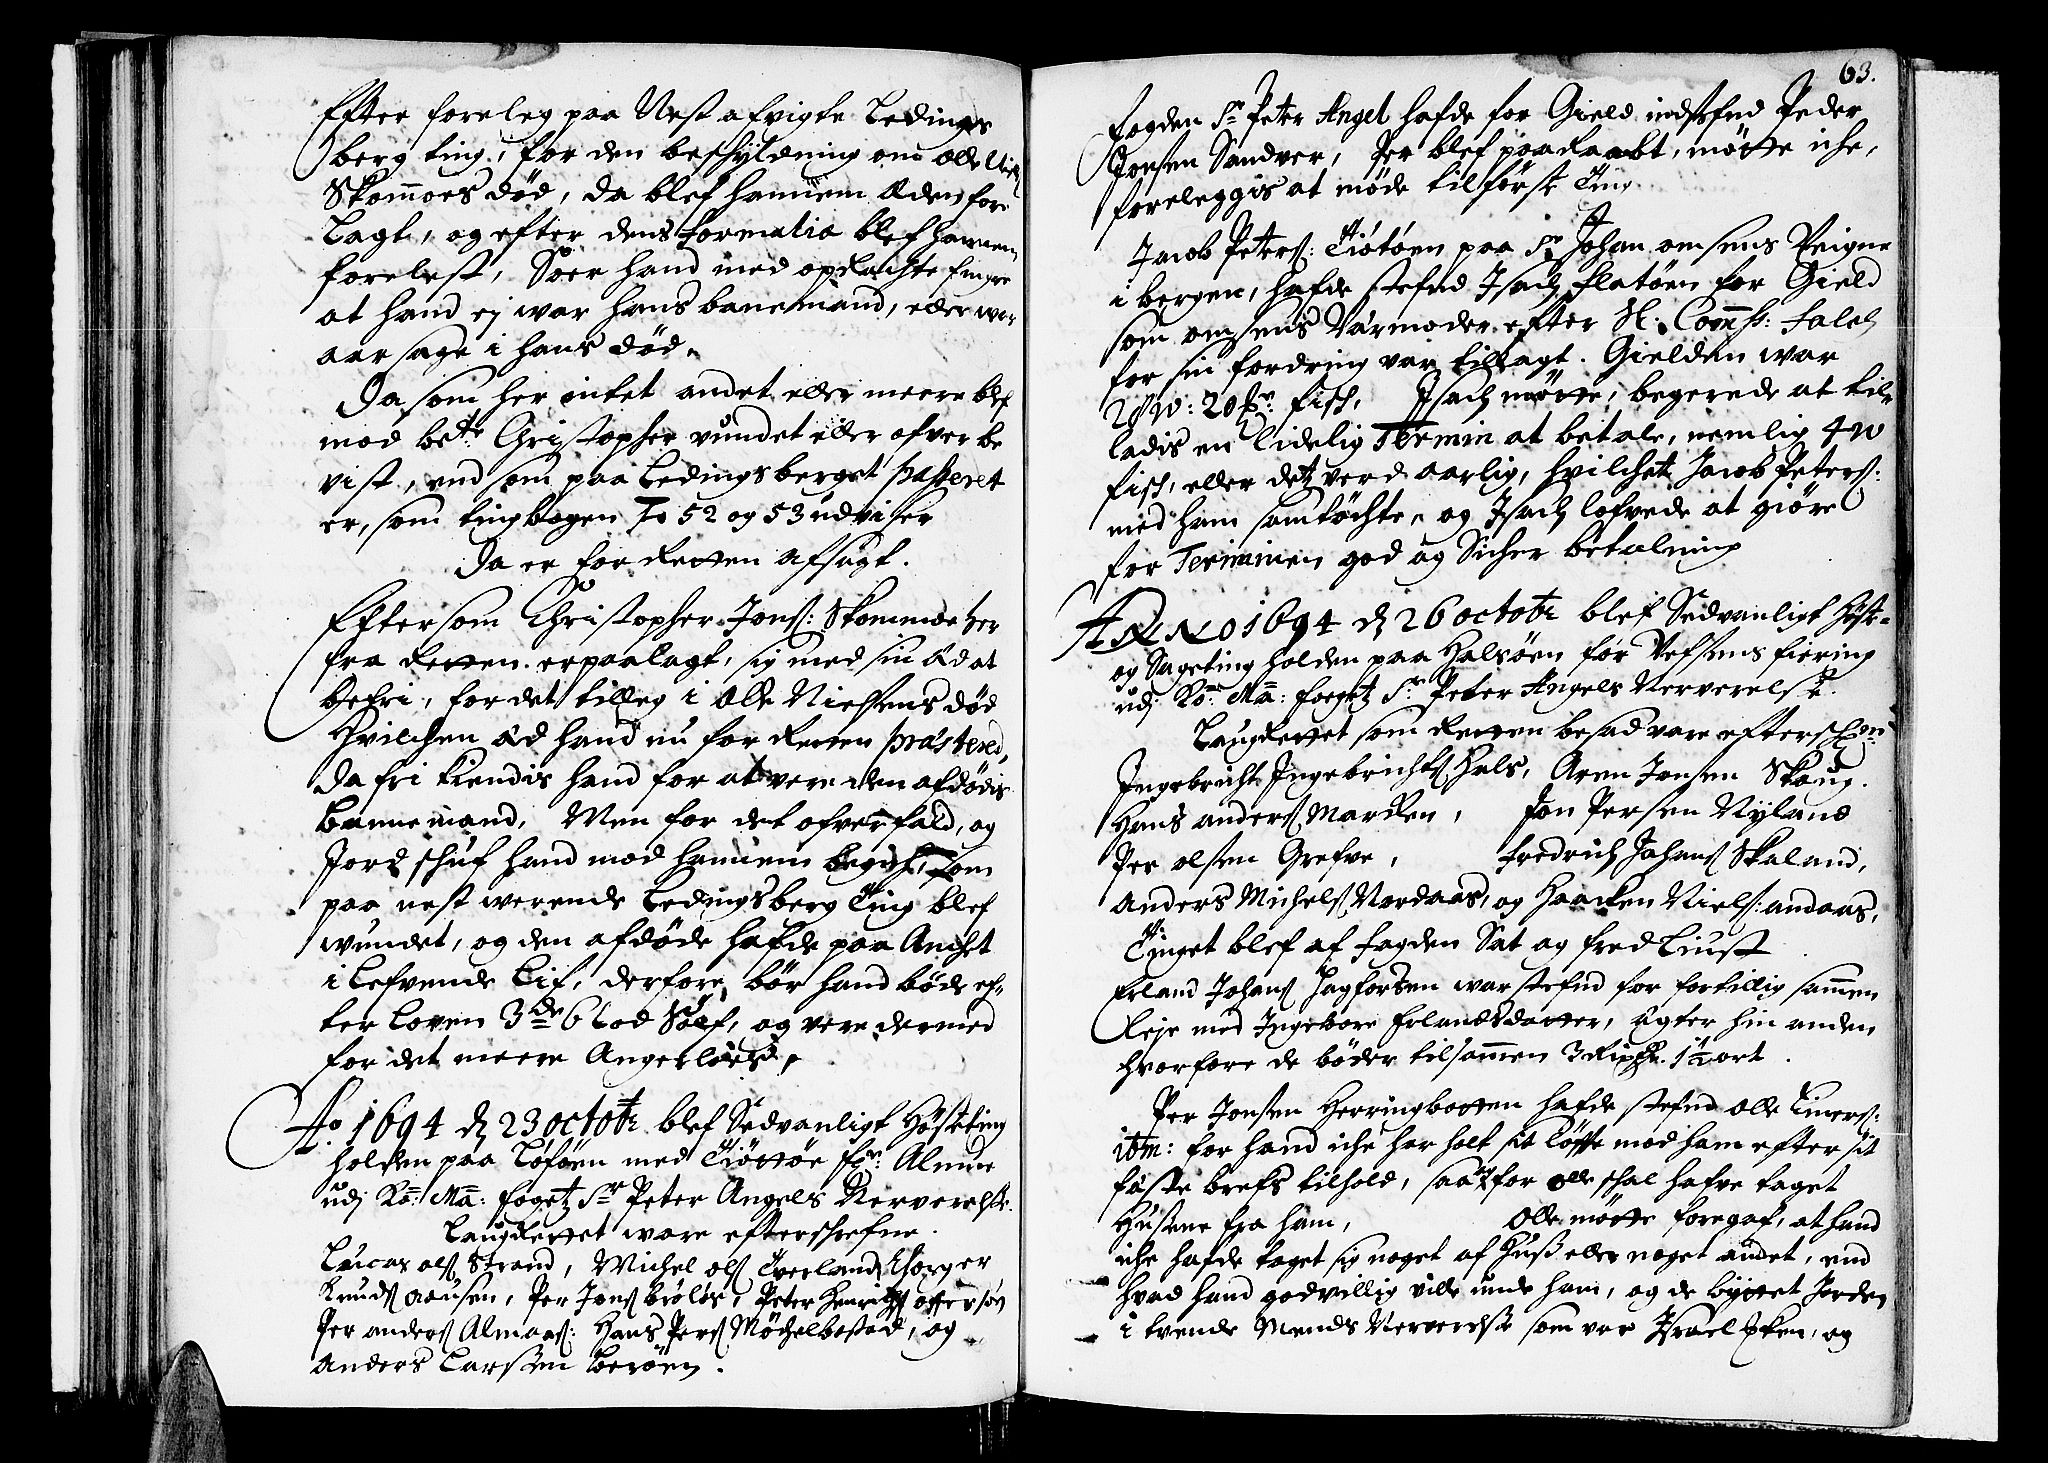 Efter foreleg paa Nest afvigte Ledings
berg ting, for den beschyldning om Olle Niels:
Skomoes død, da blef hannem Æden fore
lagt, og efter dens formalia blef hannem
forelest, Soer hand med opRachte fingre
at hand ej war hans banemand, eller war
aarsage i hans død.
Da som her intet andet eller meere blef
mod bete Christopher vundet eller ofver be
vist, end som paa Ledingsberget passeret
er, som tingbogen Fo 52 og 53 udviser
Da er for Retten afsagt.
Eftersom Christopher Jons: Skommoe her
fra Retten er paalagt, sig med sin Æd at
befri, for det tilleg i Olle Nielsens død
Hvilchen Æd hand nu for Retten præstered,
Da fri kiendis hand for at vere den afdødis
bannemand, Men for det ofverfald, og
Jord schuf hand mod hannem begich, som
paa nest werende Ledingsberg Ting blef
wundet, og den afdøde hafde paa Anchet
i Lefvende Lif, derfore bør hand bøde ef-
ter Loven 3de 6 Lod Sølf, og vere dermed
for det meere Angerløes.
Ao 1694 d 23 octobr blef Sedvanligt Høsteting
holden paa Løføen med Tiøttøe for: Almue
udj Ko: Ma: fogetz Sr Peter Angels Nerverelse.
LaugRettet ware efterschrefne.
Lucas ols Strand, Michel ols Tverland, Thorger
Knuds Aausen, Per Jons brøløs, Peter Henrichs offersøy
Per anders Almaas: Hans Pers Møchelbostad, og
Anders Larssen berøen.
63.
fogden Sr Peter Angel hafde for Gield indstefnd Peder
Jonsen Sandver, Per blef paaRaabt, møtte iche,
foreleggis at møde til første Ting.
Jacob Peters: Tiøtøen paa Sr Johan omsens Veigne
i bergen, hafde stefnd Isach flatøen for Gield
som omsens Vármoder efter Sl: Comss: Falch
for sin fordring var tillagt. Gielden war
28 W: 20 pr: fisch, Isach møtte, begerede at til-
ladis en lidelig Termin at betale, nemlig 4 W
fisch, eller detz verd aarlig, hvilchet Jacob Peters:
med ham samtøchte, og Isach lofvede at giøre
for Terminen god og Sicher betalning
ANNO 1694 d 26 octobr blef Sedvanligt Høste-
og Sageting holden paa Halsøen for Vefsens fiering
udj Ko: Ma: fogetz Sr Peter Angels Nerverelse.
LaugRettet som Retten besad vare efterschrefn:
Ingebricht Ingebrichts Hals, Aren Jonsen Skoug.
Hans anders MarcKen, Jon Persen Nyland
Per olsen Grefve, fredrich Johans Skaland,
Anders Michels Nordaas, og Haacken Niels: andaas,
Tinget blef af fogden Sat og fred Liust
Erland Johans Hagforsen war stefnd for fortillig sammen
Leje med Ingebore Erlandsdatter, Ægter hin anden
hvorfore de bøder tilsammen 3 Rixdr. 1½ ort.
Per Jonsen Herringbotten hafde stefnd Olle Einers:
ibm: for hand iche har holt sit løfte mod ham efter sit
fæste brefs tilhold, saa og for Olle schal hafve taget
Husene fra ham, Olle møtte foregaf, at hand
iche hafde taget sig noget af Huss eller noget andet, end
hvad hand godvillig ville unde ham, og de byttet Jorden
i tvende Mends Nerverelse som var Israel Eken, og